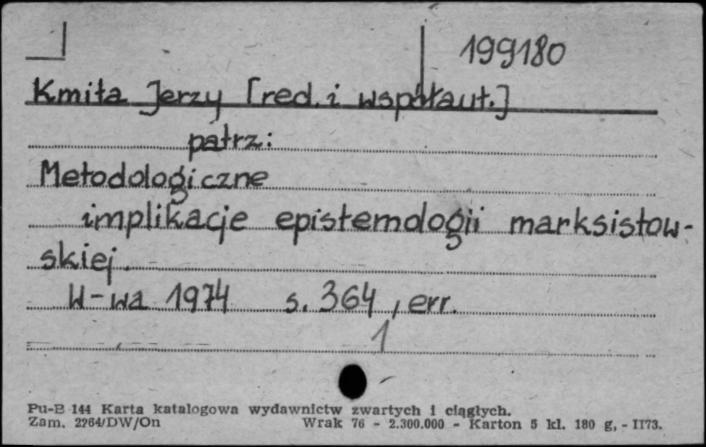 199180
Kmita Jerzy [red. i współaut.]
patrz:
Metodologiczne
implikacje epistemologii marksistow-
skiej.
W-wa 1974 s. 364, err.
1
Pu-B 144 Karta katalogowa wydawnictw zwartych i ciągłych.
Zam. 2264/DW/On Wrak 76 - 2.300.000 - Karton 5 kl. 180 g, - II73.